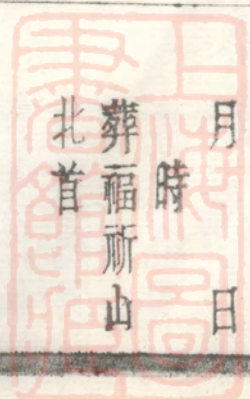 月　日
時
葬福祈山
北首